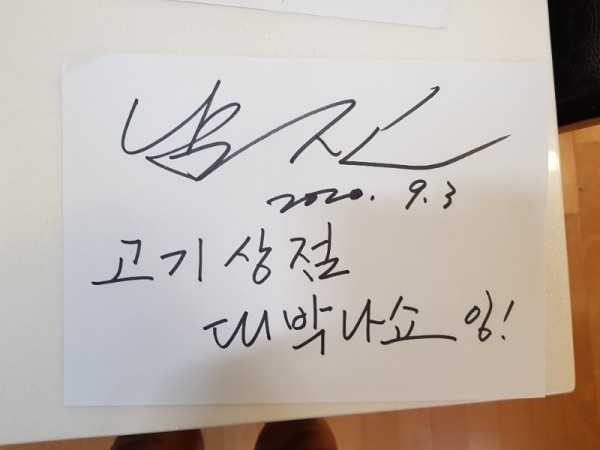 남진
2020. 9. 3
고기상점
대박나쇼잉!